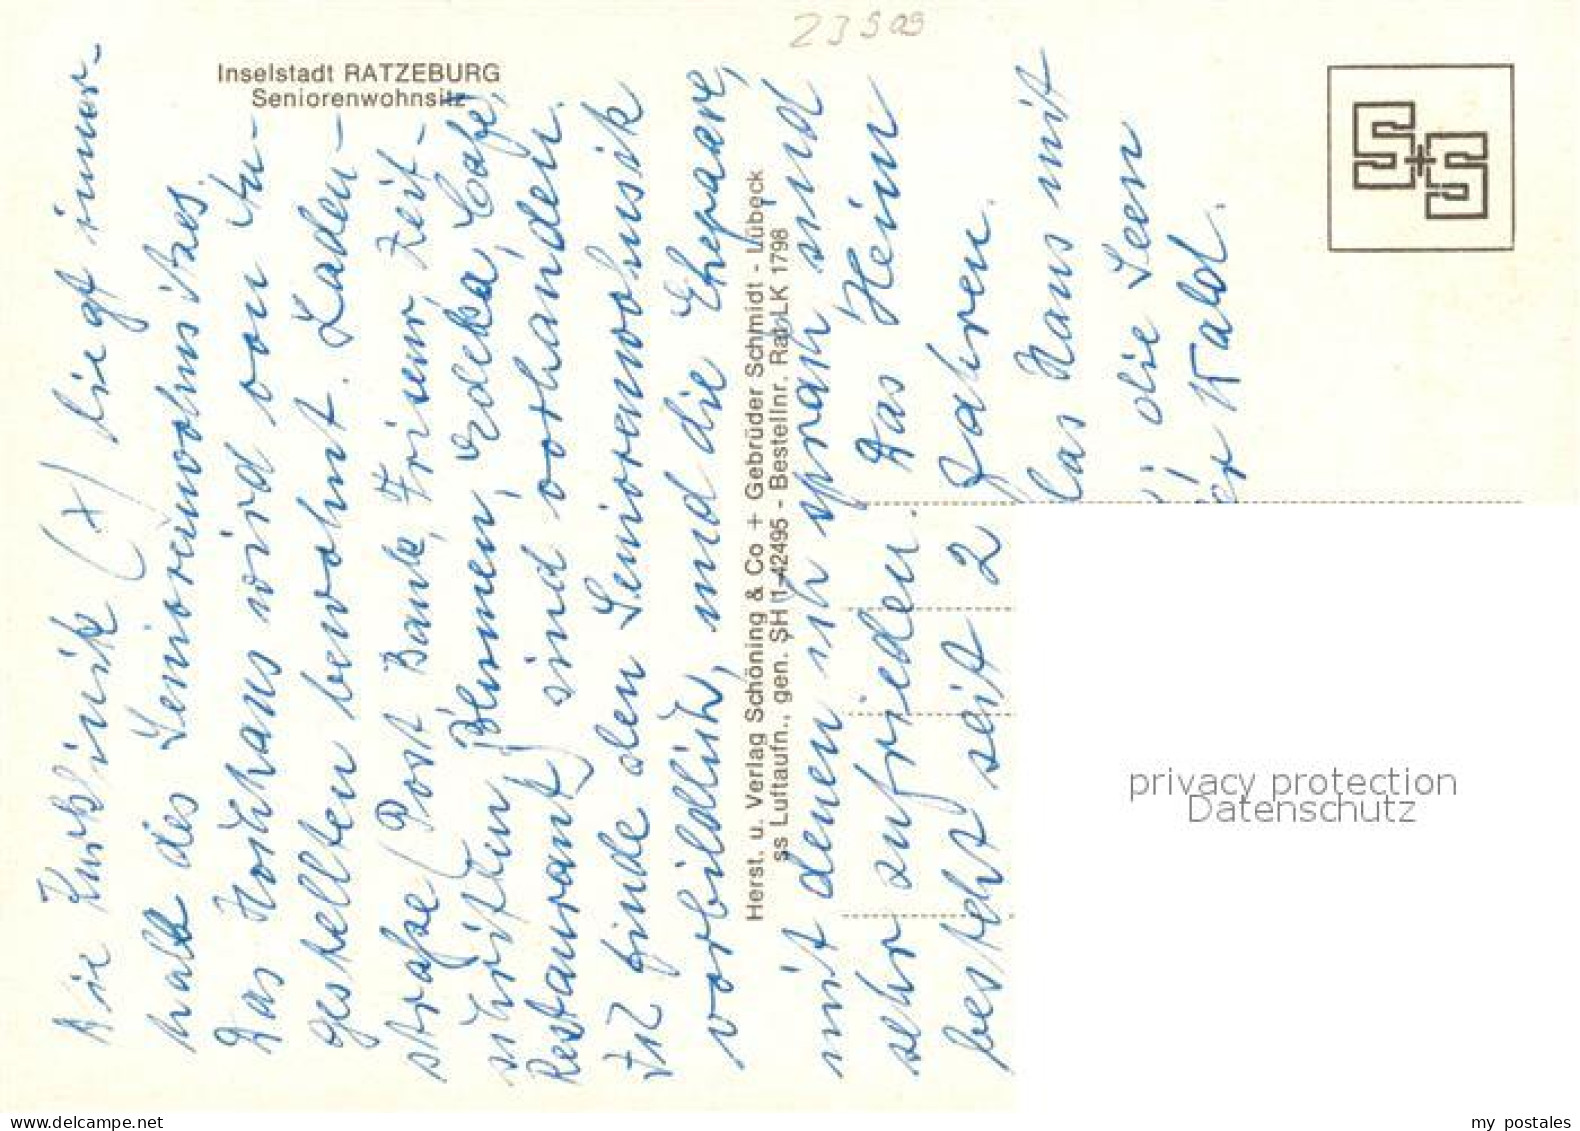 23909
Inselstadt RATZEBURG
Seniorenwohnsitz
S+S
Die Kurklinik (x) liegt inner-
halb des Seniorenwohnsitzes.
Das Hochhaus wird von An-
gestellten bewohnt. Laden-
straße (Post Bank, Friseur, Zeit-
schriften, Blumen, Edeka, Café,
Restaurant) sind vorhanden.
Ich finde den Seniorenwohnsitz
vorbildlich, und die Ehepaare,
mit denen ich sprach sind
sehr zufrieden. Das Heim
besteht seit 2 Jahren.
das Haus mit
die Seen
der Wald.
Herst. u. Verlag Schöning & Co + Gebrüder Schmidt - Lübeck
ss Luftaufn., gen. SH 1-42495 - Bestellnr. Rat LK 1798
privacy protection
Datenschutz
www.delcampe.net
my postales